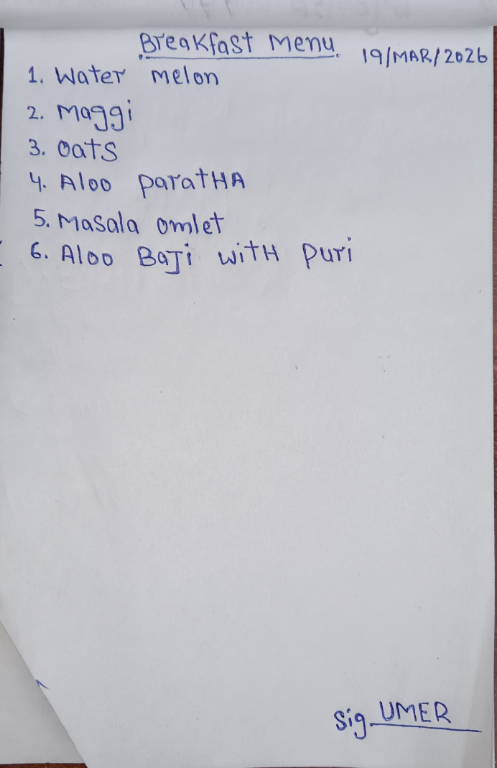 Breakfast Menu
19/MAR/2026
1. Water melon
2. Maggi
3. Oats
4. Aloo paratHA
5. Masala omlet
6. Aloo BaJi witH puri
Sig. UMER